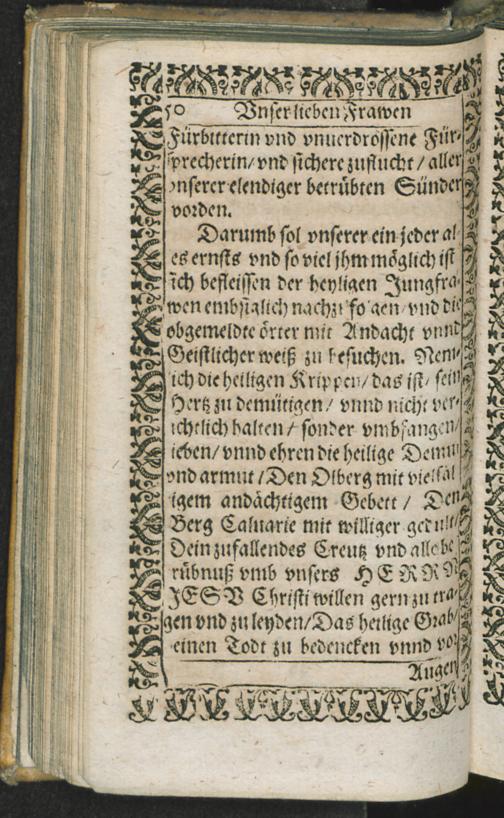 50 Vnser lieben Frawen
Fürbitterin vnd vnuerdrossene Für-
sprecherin/ vnd sichere zuflucht / aller
vnserer elendiger betrübten Sünder
worden.
Darumb sol vnserer ein jeder al
es ernsts vnd so viel jhm möglich ist
sich befleissen der heyligen Jungfra-
wen embsiglich nachzu folgen/ vnd die
obgemeldte örter mit Andacht vnnd
Geistlicher weiß zu besuchen. Nem-
lich die heiligen Krippen/ das ist/ sein
Hertz zu demütigen / vnnd nicht ver-
ächtlich halten / sonder vmbfangen/
lieben/ vnnd ehren die heilige Demut
vnd armut / Den Olberg mit vielfäl
tigem andächtigem Gebett / Den
Berg Caluarie mit williger gedult/
Dein zufallendes Creutz vnd alle be
trübnuß vmb vnsers HERRN
JESV Christi willen gern zu tra-
gen vnd zu leyden/ Das heilige Grab/
seinen Todt zu bedencken vnnd vor
Augen